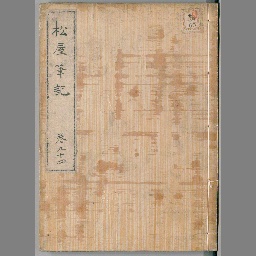 松屋筆記
巻九十四